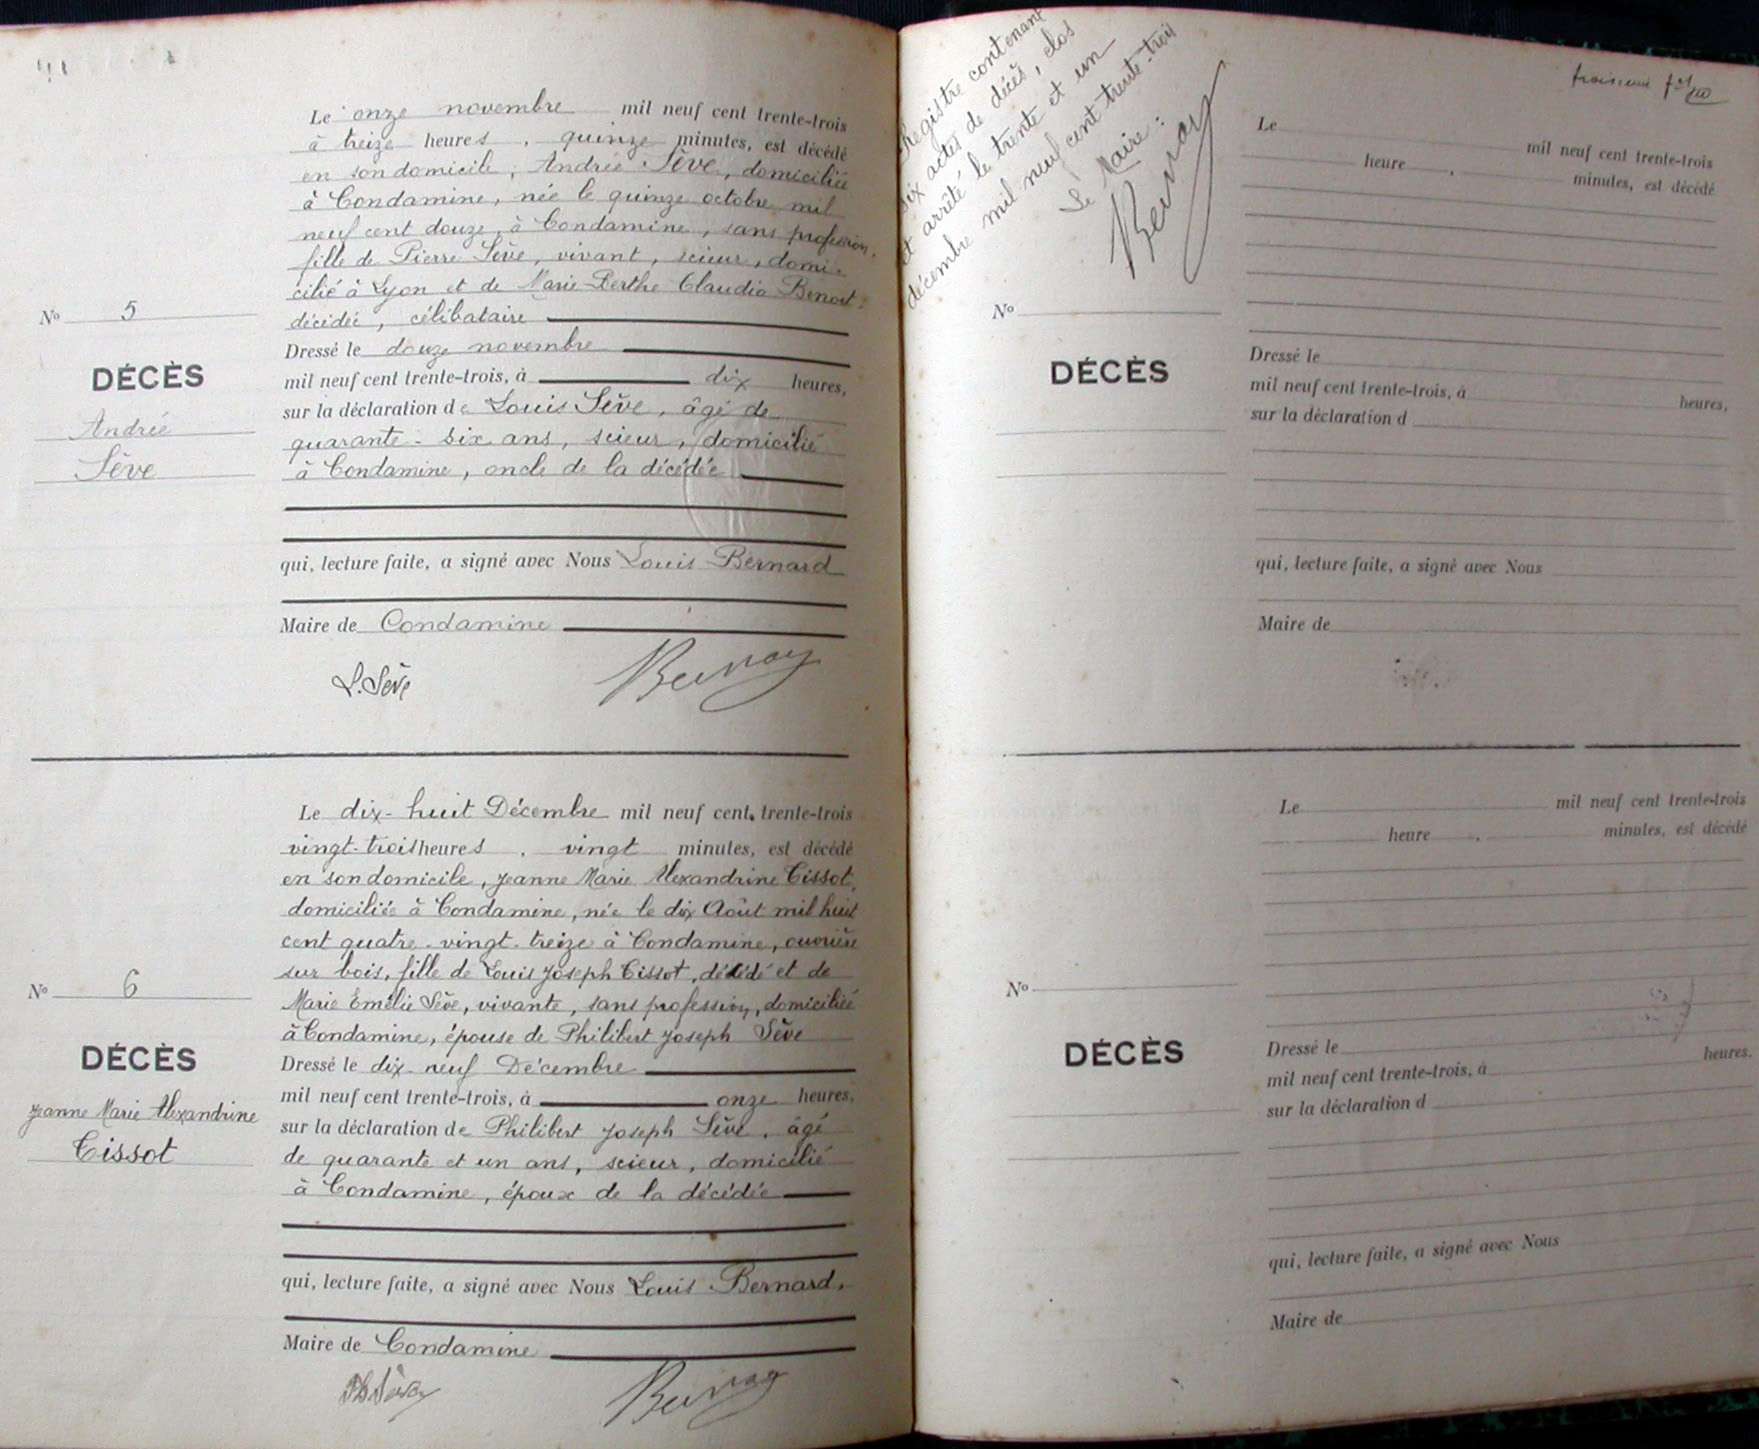 Le onze novembre mil neuf cent trente-trois
à treize heures, quinze minutes, est décédé
en son domicile, Andrée Sève, domiciliée
à Condamine, née le quinze octobre mil
neuf cent douze, à Condamine, sans profession,
fille de Pierre Sève, vivant, scieur, domi-
cilié à Lyon et de Marie-Berthe Claudia Benoit,
décédée, célibataire
No 5
DÉCÈS
Andrée
Sève
Dressé le douze novembre
mil neuf cent trente-trois, à dix heures,
sur la déclaration de Louis Sève, âgé de
quarante-six ans, scieur, domicilié
à Condamine, oncle de la décédée
qui, lecture faite, a signé avec Nous Louis Bernard
Maire de Condamine
L. Sève
Le dix-huit Décembre mil neuf cent trente-trois
vingt-trois heures, vingt minutes, est décédé
en son domicile, Jeanne Marie Alexandrine Tissot,
domiciliée à Condamine, née le dix Août mil huit
cent quatre-vingt-treize à Condamine, ouvrière
sur bois, fille de Louis Joseph Tissot, décédé et de
Marie Emélie Sève, vivante, sans profession, domiciliée
à Condamine, épouse de Philibert Joseph Sève
No 6
DÉCÈS
Jeanne Marie Alexandrine
Tissot
Dressé le dix-neuf Décembre
mil neuf cent trente-trois, à onze heures,
sur la déclaration de Philibert Joseph Sève, âgé
de quarante et un ans, scieur, domicilié
à Condamine, époux de la décédée
qui, lecture faite, a signé avec Nous Louis Bernard,
Maire de Condamine
Registre contenant
six actes de décès, clos
et arrêté le trente et un
décembre mil neuf cent trente-trois
Le Maire:
Le mil neuf cent trente-trois
heure, minutes, est décédé
No
DÉCÈS
Dressé le
mil neuf cent trente-trois, à heures,
sur la déclaration d
qui, lecture faite, a signé avec Nous
Maire de
Le mil neuf cent trente-trois
heure, minutes, est décédé
No
DÉCÈS
Dressé le
mil neuf cent trente-trois, à heures.
sur la déclaration d
qui, lecture faite, a signé avec Nous
Maire de